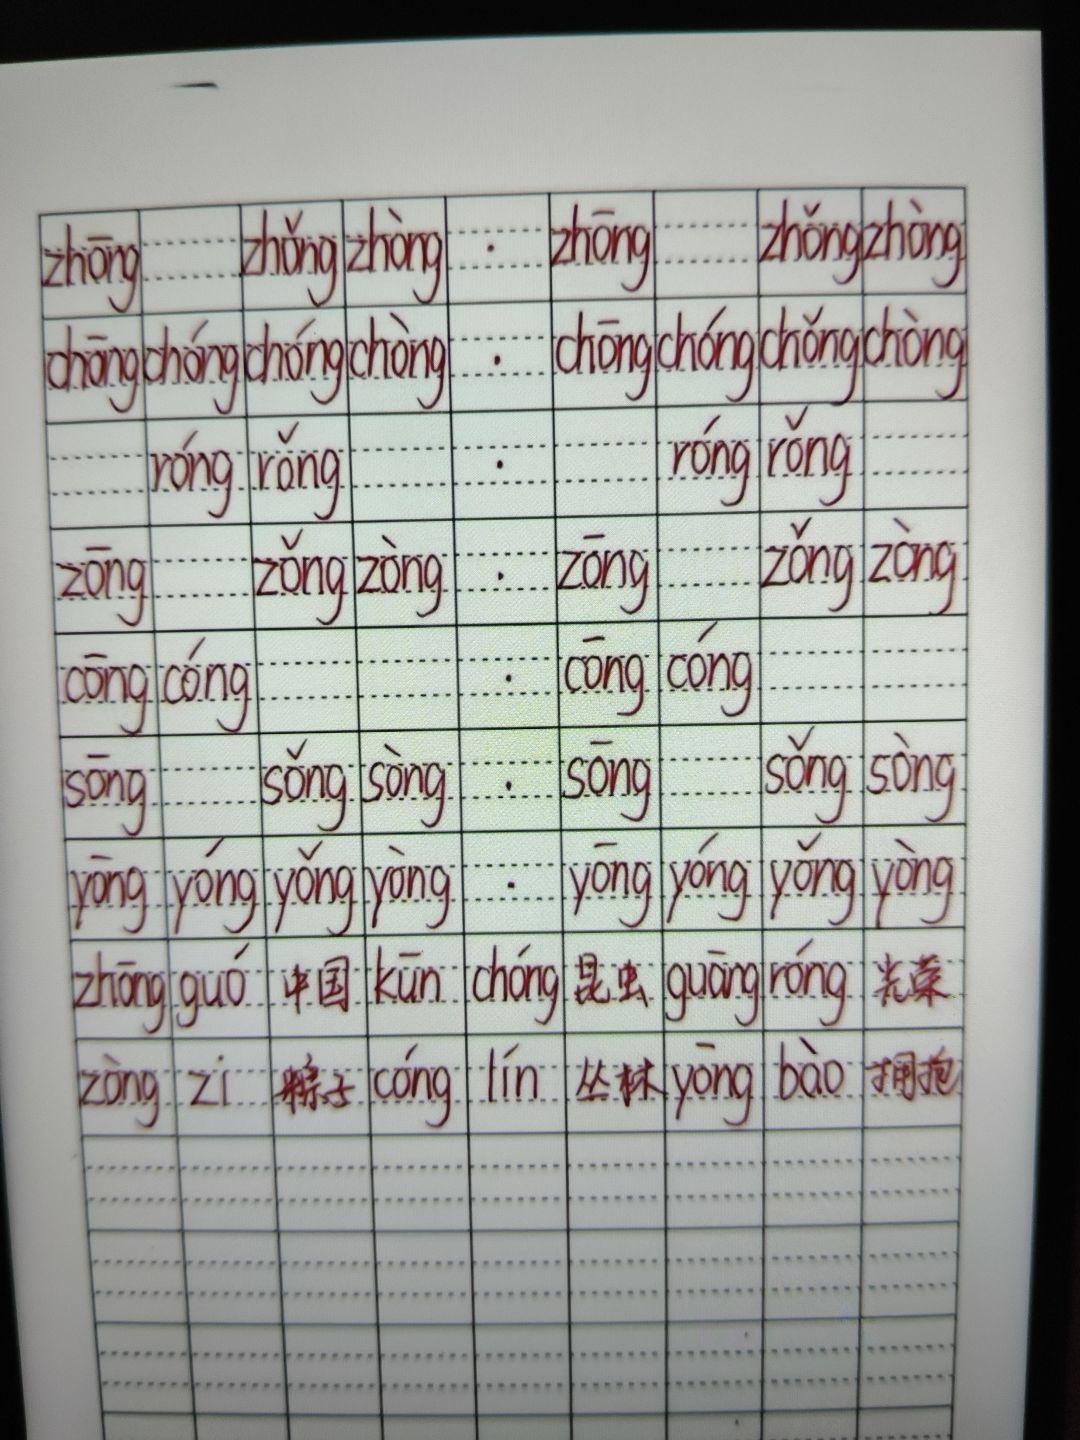 zhōng zhǒng zhòng · zhōng zhǒng zhòng
chōng chóng chóng chòng · chōng chóng chǒng chòng
róng rǒng · róng rǒng
zōng zǒng zòng · zōng zǒng zòng
cōng cóng · cōng cóng
sōng sǒng sòng · sōng sǒng sòng
yōng yóng yǒng yòng · yōng yóng yǒng yòng
zhōng guó 中国 kūn chóng 昆虫 guāng róng 光荣
zòng zi 粽子 cóng lín 丛林 yōng bào 拥抱